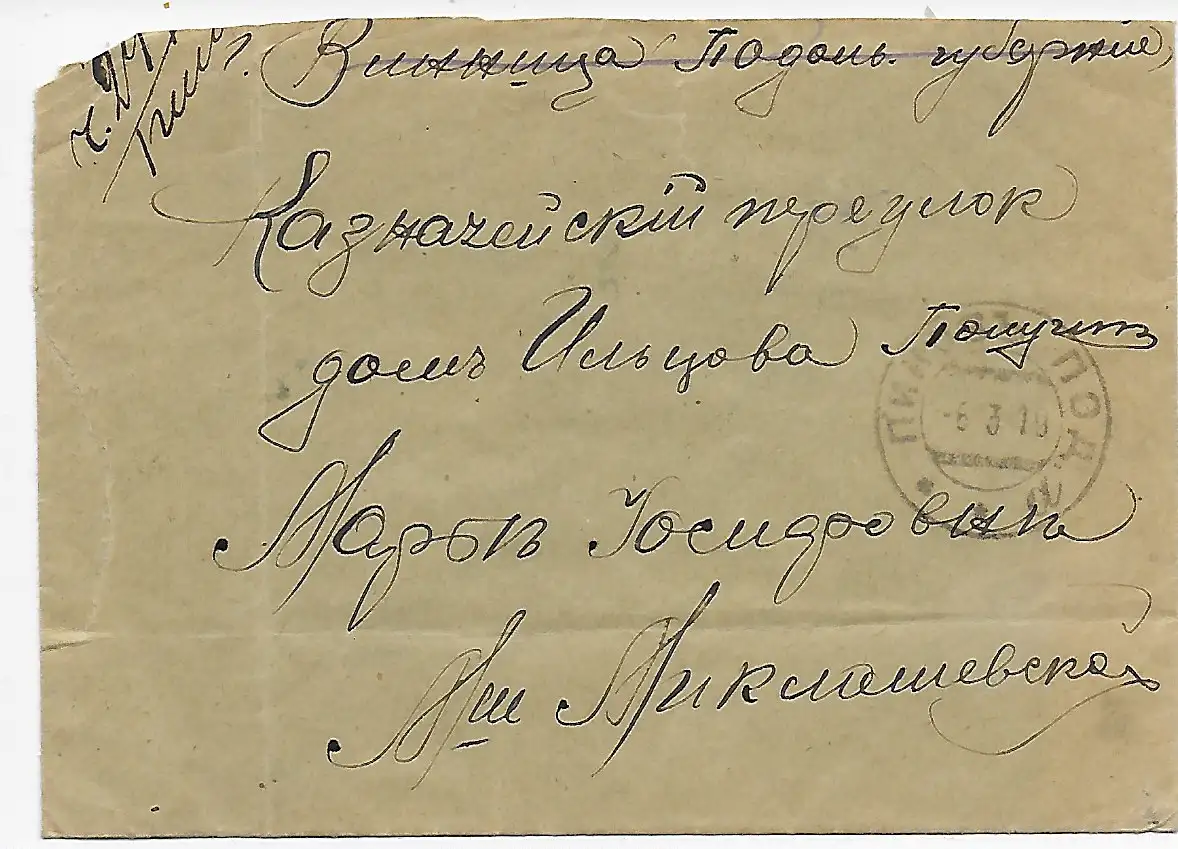 г. Винница Подоль. губернiи,
Казначейскiй переулок
домъ Ильцова Получит
Марьи Iосифовны
Мш Миклашевская
-6 3 18